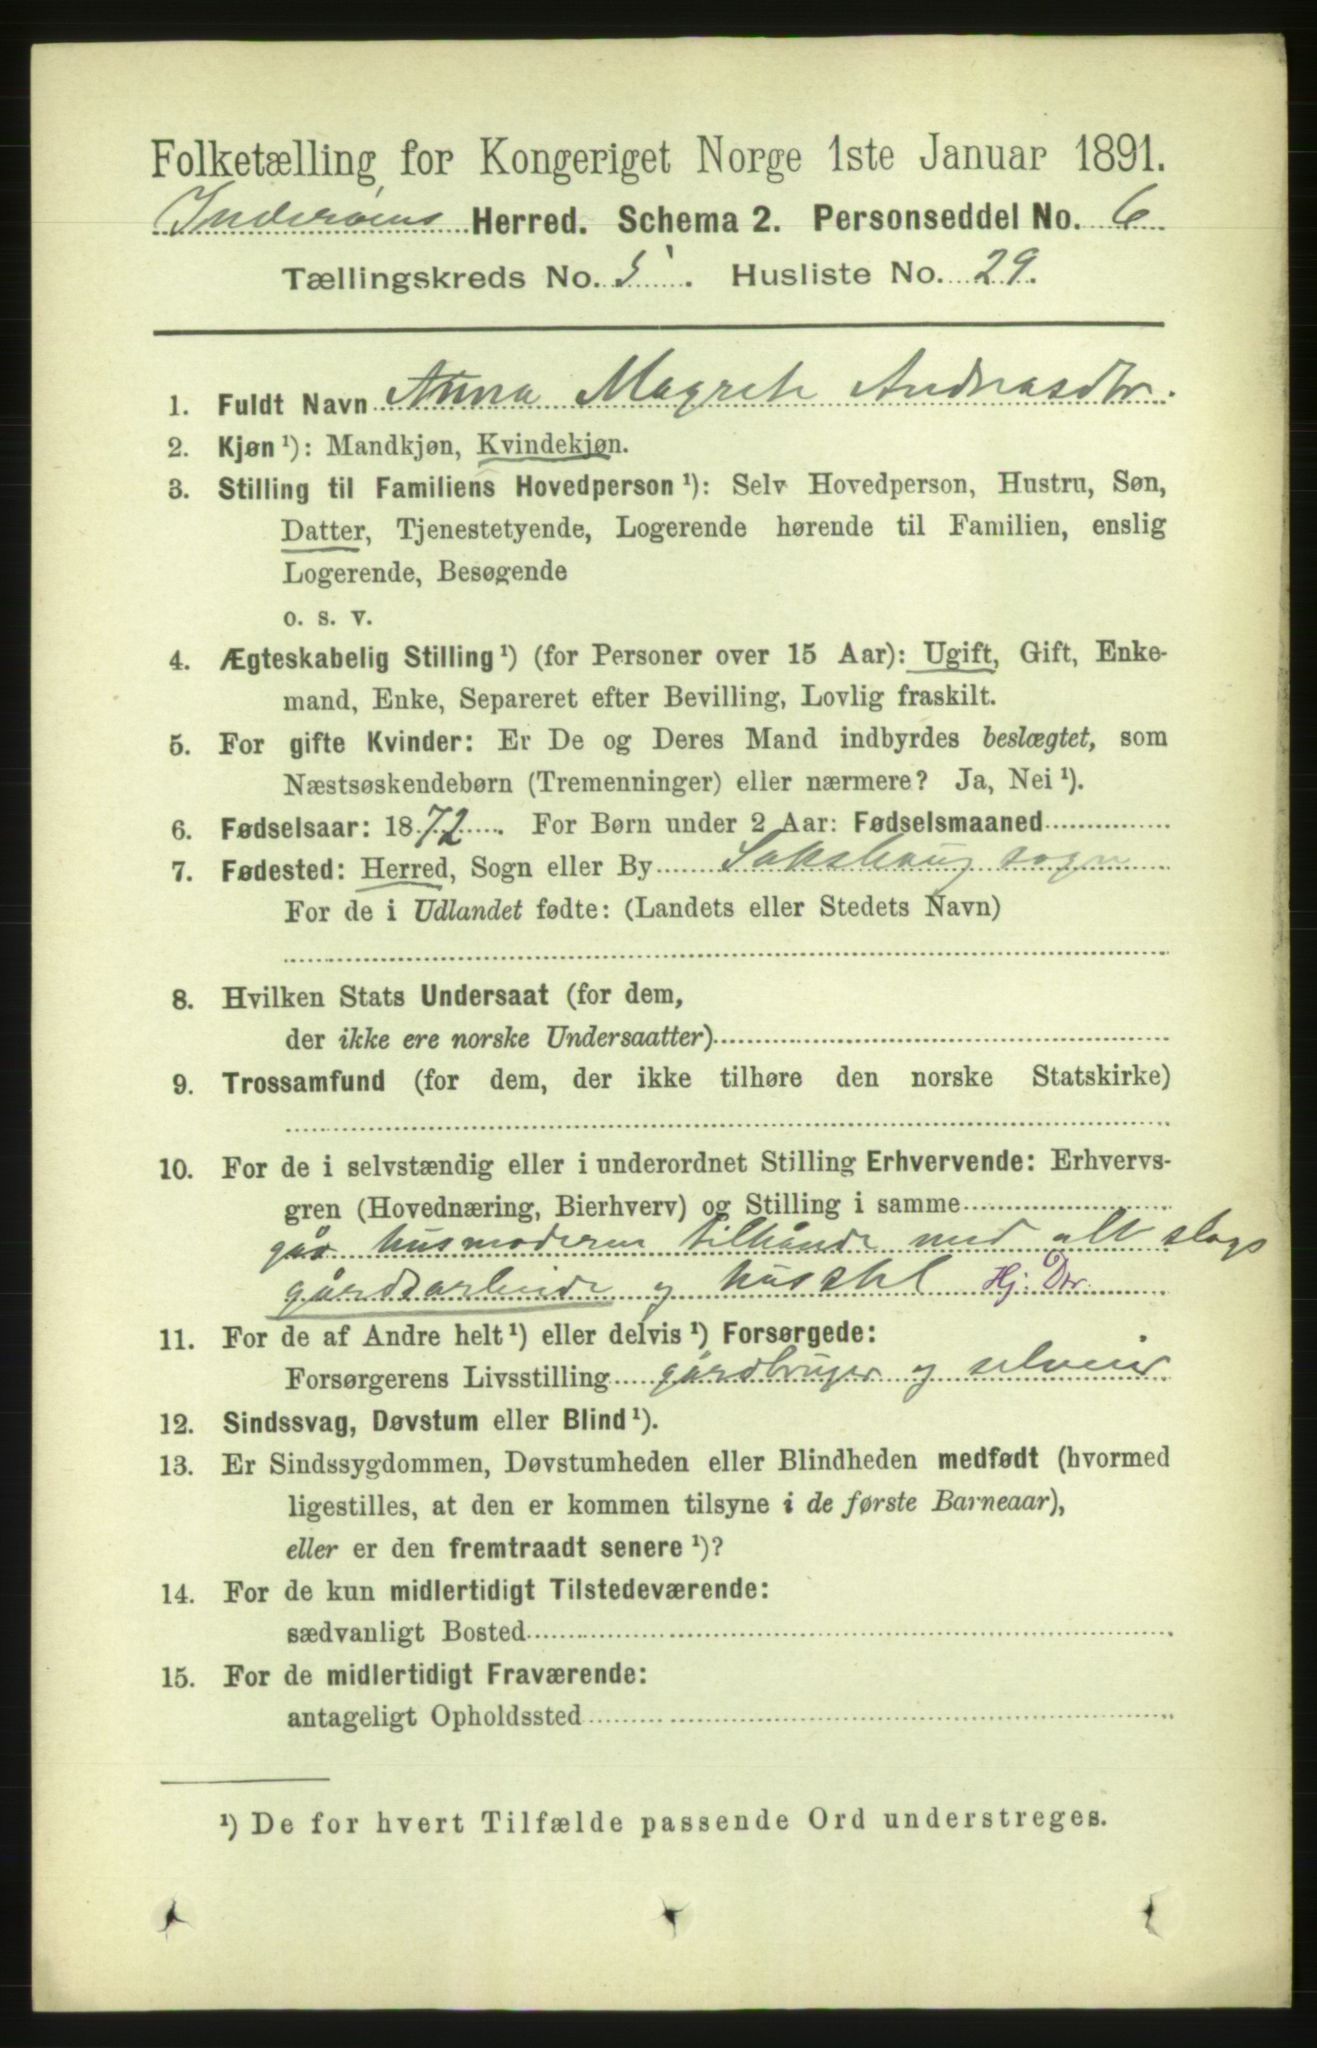 Folketælling for Kongeriget Norge 1ste Januar 1891.
Inderøens Herred. Schema 2. Personseddel No. 6
Tællingskreds No. 5. Husliste No. 29.
1. Fuldt Navn Anna Magrete Andreasdtr.
2. Kjøn¹): Mandkjøn, Kvindekjøn.
3. Stilling til Familiens Hovedperson¹): Selv Hovedperson, Hustru, Søn,
Datter, Tjenestetyende, Logerende hørende til Familien, enslig
Logerende, Besøgende
o. s. v.
4. Ægteskabelig Stilling¹) (for Personer over 15 Aar): Ugift, Gift, Enke-
mand, Enke, Separeret efter Bevilling, Lovlig fraskilt.
5. For gifte Kvinder: Er De og Deres Mand indbyrdes beslægtet, som
Næstsøskendebørn (Tremenninger) eller nærmere? Ja, Nei¹).
6. Fødselsaar: 1872. For Børn under 2 Aar: Fødselsmaaned
7. Fødested: Herred, Sogn eller By Sakshaug sogn
For de i Udlandet fødte: (Landets eller Stedets Navn)
8. Hvilken Stats Undersaat (for dem,
der ikke ere norske Undersaatter)
9. Trossamfund (for dem, der ikke tilhøre den norske Statskirke)
10. For de i selvstændig eller i underordnet Stilling Erhvervende: Erhvervs-
gren (Hovednæring, Bierhverv) og Stilling i samme
går husmoderen tilhånde med alt slags
gårdsarbeide og husstel Hj. Dtr.
11. For de af Andre helt¹) eller delvis¹) Forsørgede:
Forsørgerens Livsstilling gårdbruger og selveier
12. Sindssvag, Døvstum eller Blind¹).
13. Er Sindssygdommen, Døvstumheden eller Blindheden medfødt (hvormed
ligestilles, at den er kommen tilsyne i de første Barneaar),
eller er den fremtraadt senere¹)?
14. For de kun midlertidigt Tilstedeværende:
sædvanligt Bosted
15. For de midlertidigt Fraværende:
antageligt Opholdssted
¹) De for hvert Tilfælde passende Ord understreges.